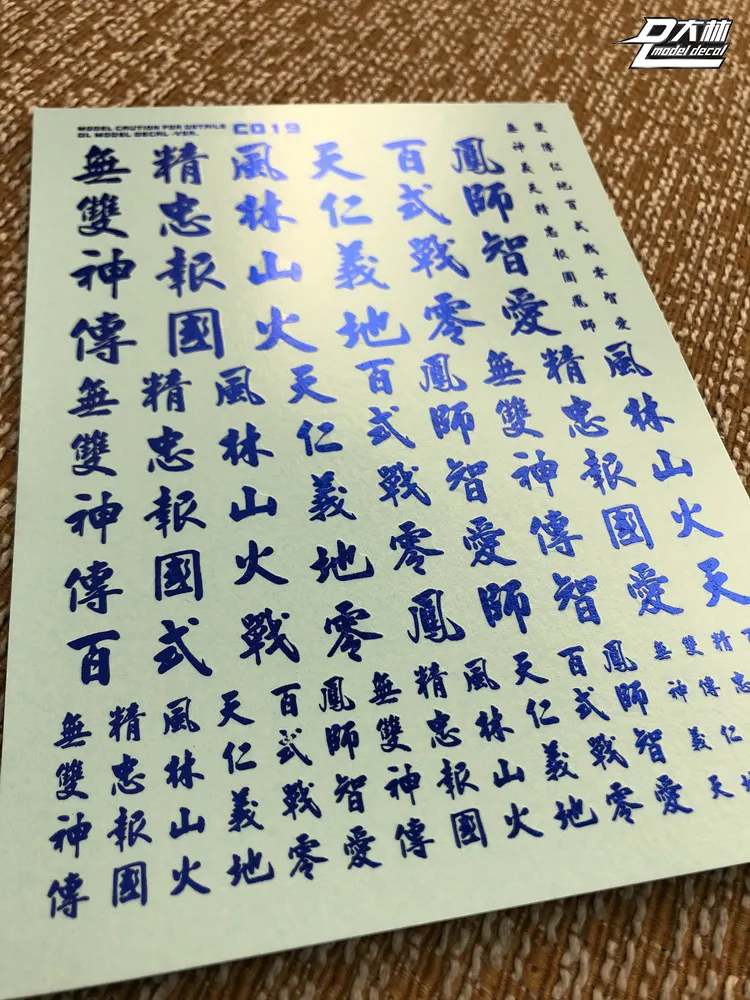 DL大林
model decal
MODEL CAUTION FOR DETAILS
DL MODEL DECAL-VER.
CD19
無雙神傳
精忠報國
風林山火
天仁義地
百式戰零
鳳師智愛
無神義天精忠報國鳳師
雙傳仁地百式戰零智愛
無雙神傳
精忠報國
風林山火
天仁義地
百式戰零
鳳師智愛
無雙神傳
精忠報國
風林山火
百式戰零鳳師智愛天
無雙神傳
精忠報國
風林山火
天仁義地
百式戰零
鳳師智愛
無雙神傳
精忠報國
風林山火
天仁義地
百式戰零
鳳師智愛
無雙精
神傳忠
義仁
天